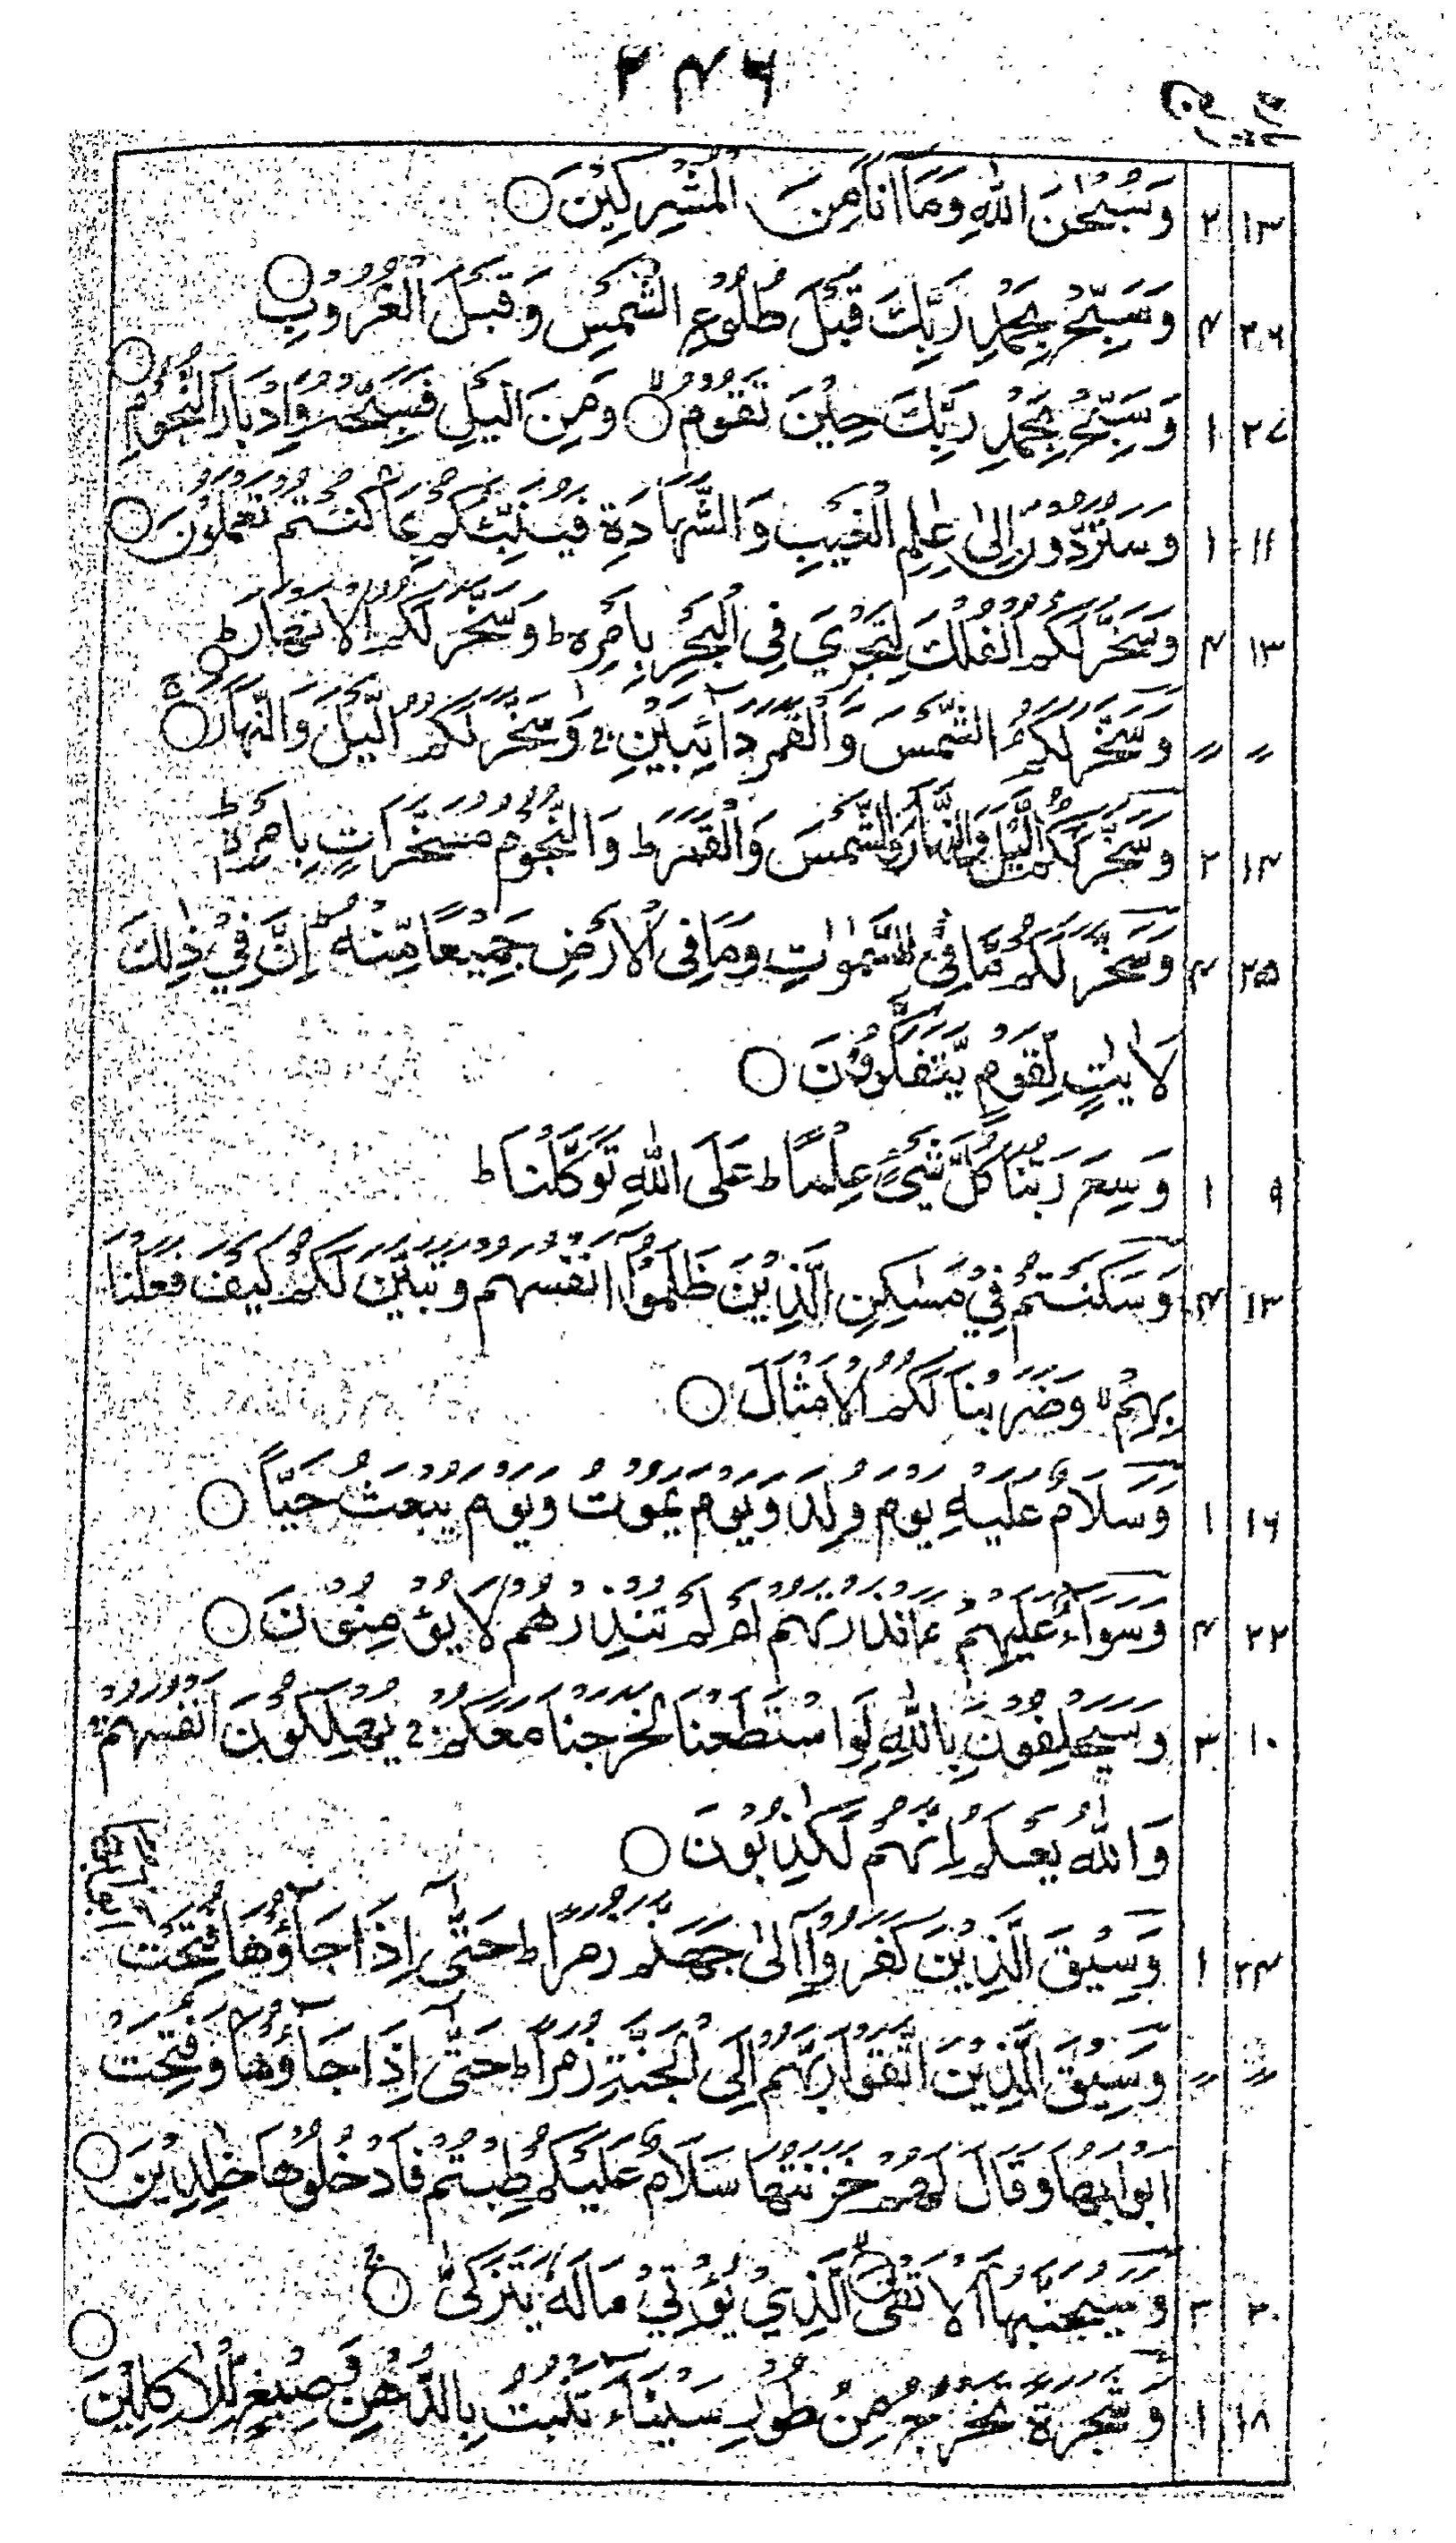 ۲۴۶
پارہ رکوع
۱۳ ۲ وَسُبْحٰنَ اللّٰهِ وَمَا اَنَا مِنَ الْمُشْرِكِيْنَ ○
۲۶ ۴ وَسَبِّحْ بِحَمْدِ رَبِّكَ قَبْلَ طُلُوْعِ الشَّمْسِ وَقَبْلَ الْغُرُوْبِ ○
۲۷ ۱ وَسَبِّحْ بِحَمْدِ رَبِّكَ حِيْنَ تَقُوْمُ ○ وَمِنَ الَّيْلِ فَسَبِّحْهُ وَاِدْبَارَ النُّجُوْمِ ○
۱۱ ۱ وَسَتُرَدُّوْنَ اِلٰى عٰلِمِ الْغَيْبِ وَالشَّهَادَةِ فَيُنَبِّئُكُمْ بِمَا كُنْتُمْ تَعْمَلُوْنَ ○
۱۳ ۴ وَسَخَّرَ لَكُمُ الْفُلْكَ لِتَجْرِيَ فِي الْبَحْرِ بِاَمْرِهٖ ط وَسَخَّرَ لَكُمُ الْاَنْهَارَ ط
〃 〃 وَسَخَّرَ لَكُمُ الشَّمْسَ وَالْقَمَرَ دَآئِبَيْنِ ج وَسَخَّرَ لَكُمُ الَّيْلَ وَالنَّهَارَ ○
۱۴ ۲ وَسَخَّرَ لَكُمُ الَّيْلَ وَالنَّهَارَ وَالشَّمْسَ وَالْقَمَرَ ط وَالنُّجُوْمُ مُسَخَّرَاتٍ بِاَمْرِهٖ ط
۲۵ ۴ وَسَخَّرَ لَكُمْ مَّا فِى السَّمٰوٰتِ وَمَا فِى الْاَرْضِ جَمِيْعًا مِّنْهُ ط اِنَّ فِيْ ذٰلِكَ
لَاٰيٰتٍ لِّقَوْمٍ يَّتَفَكَّرُوْنَ ○
۹ ۱ وَسِعَ رَبُّنَا كُلَّ شَيْءٍ عِلْمًا ط عَلَى اللّٰهِ تَوَكَّلْنَا ط
۱۳ ۴ وَسَكَنْتُمْ فِيْ مَسٰكِنِ الَّذِيْنَ ظَلَمُوْا اَنْفُسَهُمْ وَتَبَيَّنَ لَكُمْ كَيْفَ فَعَلْنَا
بِهِمْ وَضَرَبْنَا لَكُمُ الْاَمْثَالَ ○
۱۶ ۱ وَسَلَامٌ عَلَيْهِ يَوْمَ وُلِدَ وَيَوْمَ يَمُوْتُ وَيَوْمَ يُبْعَثُ حَيًّا ○
۲۲ ۴ وَسَوَآءٌ عَلَيْهِمْ ءَاَنْذَرْتَهُمْ اَمْ لَمْ تُنْذِرْهُمْ لَا يُؤْمِنُوْنَ ○
۱۰ ۳ وَسَيَحْلِفُوْنَ بِاللّٰهِ لَوِ اسْتَطَعْنَا لَخَرَجْنَا مَعَكُمْ ج يُهْلِكُوْنَ اَنْفُسَهُمْ ج
وَاللّٰهُ يَعْلَمُ اِنَّهُمْ لَكٰذِبُوْنَ ○
۲۴ ۱ وَسِيْقَ الَّذِيْنَ كَفَرُوْا اِلٰى جَهَنَّمَ زُمَرًا ط حَتّٰى اِذَا جَآؤُهَا فُتِحَتْ
〃 〃 وَسِيْقَ الَّذِيْنَ اتَّقَوْا رَبَّهُمْ اِلَى الْجَنَّةِ زُمَرًا ط حَتّٰى اِذَا جَآؤُهَا وَفُتِحَتْ
اَبْوَابُهَا وَقَالَ لَهُمْ خَزَنَتُهَا سَلَامٌ عَلَيْكُمْ طِبْتُمْ فَادْخُلُوْهَا خٰلِدِيْنَ ○
۳۰ وَسَيُجَنَّبُهَا الْاَتْقَى الَّذِيْ يُؤْتِيْ مَالَهٗ يَتَزَكّٰى ○
۱۸ ۱ وَشَجَرَةً تَخْرُجُ مِنْ طُوْرِ سَيْنَآءَ تَنْبُتُ بِالدُّهْنِ وَصِبْغٍ لِّلْاٰكِلِيْنَ ○